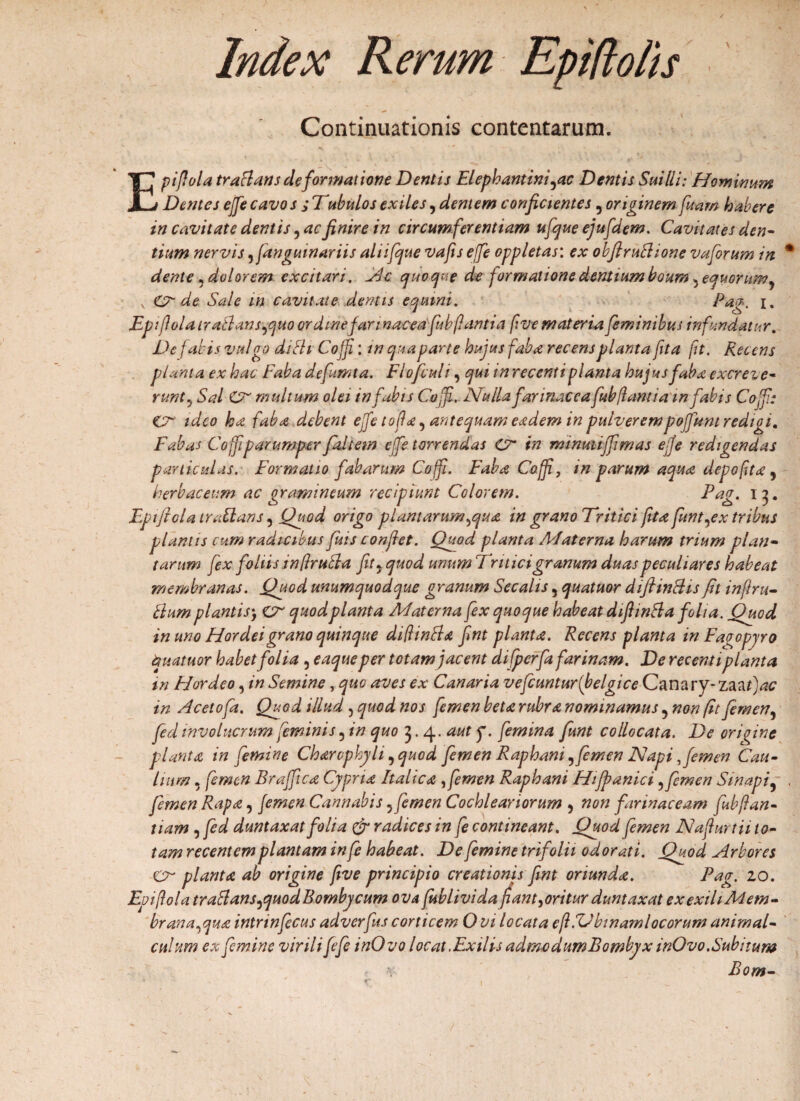 Index Rerum Epiſtolis
Continuationis contentarum.
Epiſtola tractans de formatione Dentis Elephantini, ac Dentis Suilli: Hominum
Dentes eſſe cavos; Tubulos exiles, dentem conficientes, originem ſuam habere
in cavitate dentis, ac finire in circumferentiam uſque ejuſdem. Cavitates den-
tium nervis, ſanguinariis aliiſque vaſis eſſe oppletas: ex obſtructione vaſorum in
dente, dolorem excitari. Ac quoque de formatione dentium boum, equorum,
& de Sale in cavitate dentis equini. Pag. 1.
Epiſtola tractans, quo ordine farinacea ſubſtantia ſive materia ſeminibus infundatur.
De fabis vulgo dicti Coffi: in qua parte hujus fabæ recens planta ſita ſit. Recens
planta ex hac Faba deſumta. Floſculi, qui in recenti planta hujus fabæ excreve-
runt, Sal & multum olei in fabis Coffi. Nulla farinacea ſubſtantia in fabis Coffi:
& ideo hæ fabæ debent eſſe toſtæ, antequam eædem in pulverem poſſunt redigi.
Fabas Coffi parumper ſaltem eſſe torrendas & in minutiſſimas eſſe redigendas
particulas. Formatio fabarum Coffi. Fabæ Coffi, in parum aquæ depoſitæ,
herbaceum ac gramineum recipiunt Colorem. Pag. 13.
Epiſtola tractans, Quod origo plantarum, quæ in grano Tritici ſitæ ſunt, ex tribus
plantis cum radicibus ſuis conſtet. Quod planta Materna harum trium plan-
tarum ſex foliis inſtructa ſit, quod unum Tritici granum duas peculiares habeat
membranas. Quod unumquodque granum Secalis, quatuor diſtinctis ſit inſtru-
ctum plantis; & quod planta Materna ſex quoque habeat diſtincta folia. Quod
in uno Hordei grano quinque diſtinctæ ſint plantæ. Recens planta in Fagopyro
quatuor habet folia, eaque per totam jacent diſperſa farinam. De recenti planta
in Hordeo, in Semine, quo aves ex Canaria veſcuntur (belgice Canary-zaat) ac
in Acetoſa. Quod illud, quod nos ſemen betæ rubræ nominamus, non ſit ſemen,
ſed involucrum ſeminis, in quo 3. 4. aut 5. ſemina ſunt collocata. De origine
plantæ in ſemine Chærophyli, quod ſemen Raphani, ſemen Napi, ſemen Cau-
lium, ſemen Braſſicæ Cypriæ Italicæ, ſemen Raphani Hiſpanici, ſemen Sinapi,
ſemen Rapæ, ſemen Cannabis, ſemen Cochleariorum, non farinaceam ſubſtan-
tiam, ſed duntaxat folia & radices in ſe contineant. Quod ſemen Naſturtii to-
tam recentem plantam in ſe habeat. De ſemine trifolii odorati. Quod Arbores
& plantæ ab origine ſive principio creationis ſint oriundæ. Pag. 20.
Epiſtola tractans, quod Bombycum ova ſublivida fiant, oritur duntaxat ex exili Mem-
brana, quæ intrinſecus adverſus corticem Ovi locata eſt. Ubinam locorum animal-
culum ex ſemine virili ſeſe in Ovo locat. Exilis admodum Bombyx in Ovo. Subitum
Bom-